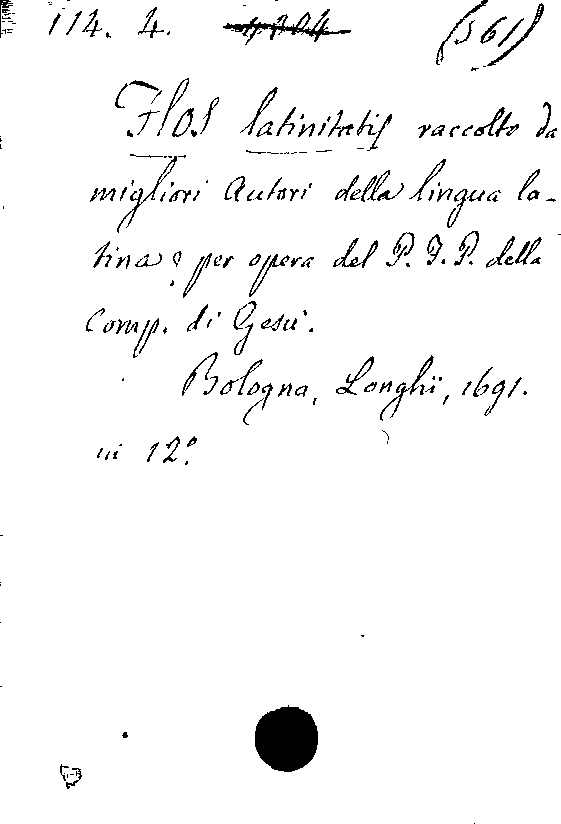 114. 4. 4304 (561)
Flos latinitatis raccolto da
migliori Autori della lingua la-
tina, per opera del P. F. P. della
Comp. di Gesù.
Bologna, Longhi, 1691.
in 12º.